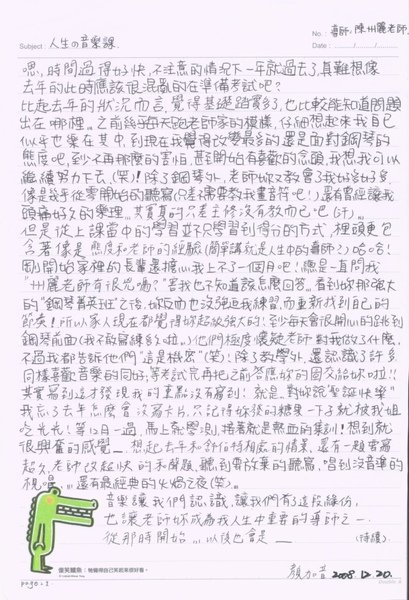 No.: 導師,陳州麗老師.
Subject: 人生の音樂課. Date: / /
嗯,時間過得好快,不注意的情況下一年就過去了,真難想像
去年的此時應該很混亂的在準備考試吧?
比起去年的狀況而言,覺得基礎踏實多,也比較能知道問題
出在哪裡。之前幾乎每天跑老師家的模樣,仔細想起來我自己
似乎也樂在其中,到現在我覺得改變最多的還是面對鋼琴的
態度吧,到不再那麼的害怕,甚至開始有喜歡的念頭,我想我可以
繼續努力下去(笑)!除了鋼琴外,老師妳又教會了我好多好多
像是幾乎從零開始的聽寫(只差需要教我畫音符吧!)還有曾經讓我
頭痛好久的樂理,其實真的只差主修沒有教而已吧(汗)。
但是從上課當中的學習並不只學習到得分的方式,裡頭更包
含著像是態度和老師的經驗(簡單講就是人生中的導師?)哈哈!
剛開始家裡的長輩還擔心我上不了一個月吧!總是一直問我
"州麗老師有很兇嗎?"害我也不知道該怎麼回答。看到妳那強大
的"鋼琴菁英班"之後,妳反而也沒強迫我練習,而重新找到自己的
節奏!所以家人現在都覺得妳超級強大的!至少每天會很開心的跳到
鋼琴前面(我不敢寫練多久啦。)他們極度懷疑老師對我做了什麼,
不過我都告訴他們"這是機密"(笑)!除了教學外,還認識了許多
同樣喜歡音樂的同好,等考試完再把之前答應妳的圖交給妳啦!!
其實寫到這才發現我的重點沒有寫到!就是,對妳說"聖誕快樂"
我忘了去年怎麼會沒寫卡片,只記得妳發的糖果一下子就被我姐
吃光光!等12月一過,馬上就學測,接著就是熱血的集訓!想到就
很興奮的感覺__. 想起去年和舒伯特相處的情景,還有一題要寫
超久,老師改超快的和聲題,聽到要放棄的聽寫,唱到沒音準的
視唱...還有最經典的火焰之夜(笑)。
音樂讓我們認識,讓我們有了這段緣份,
也讓老師妳成為我人生中重要的導師之一.
從那時開始,..以後也會是___. (待續)
顏加音 2008.12.20.
傻笑鱷魚:牠覺得自己笑起來很好看。
page. 2.